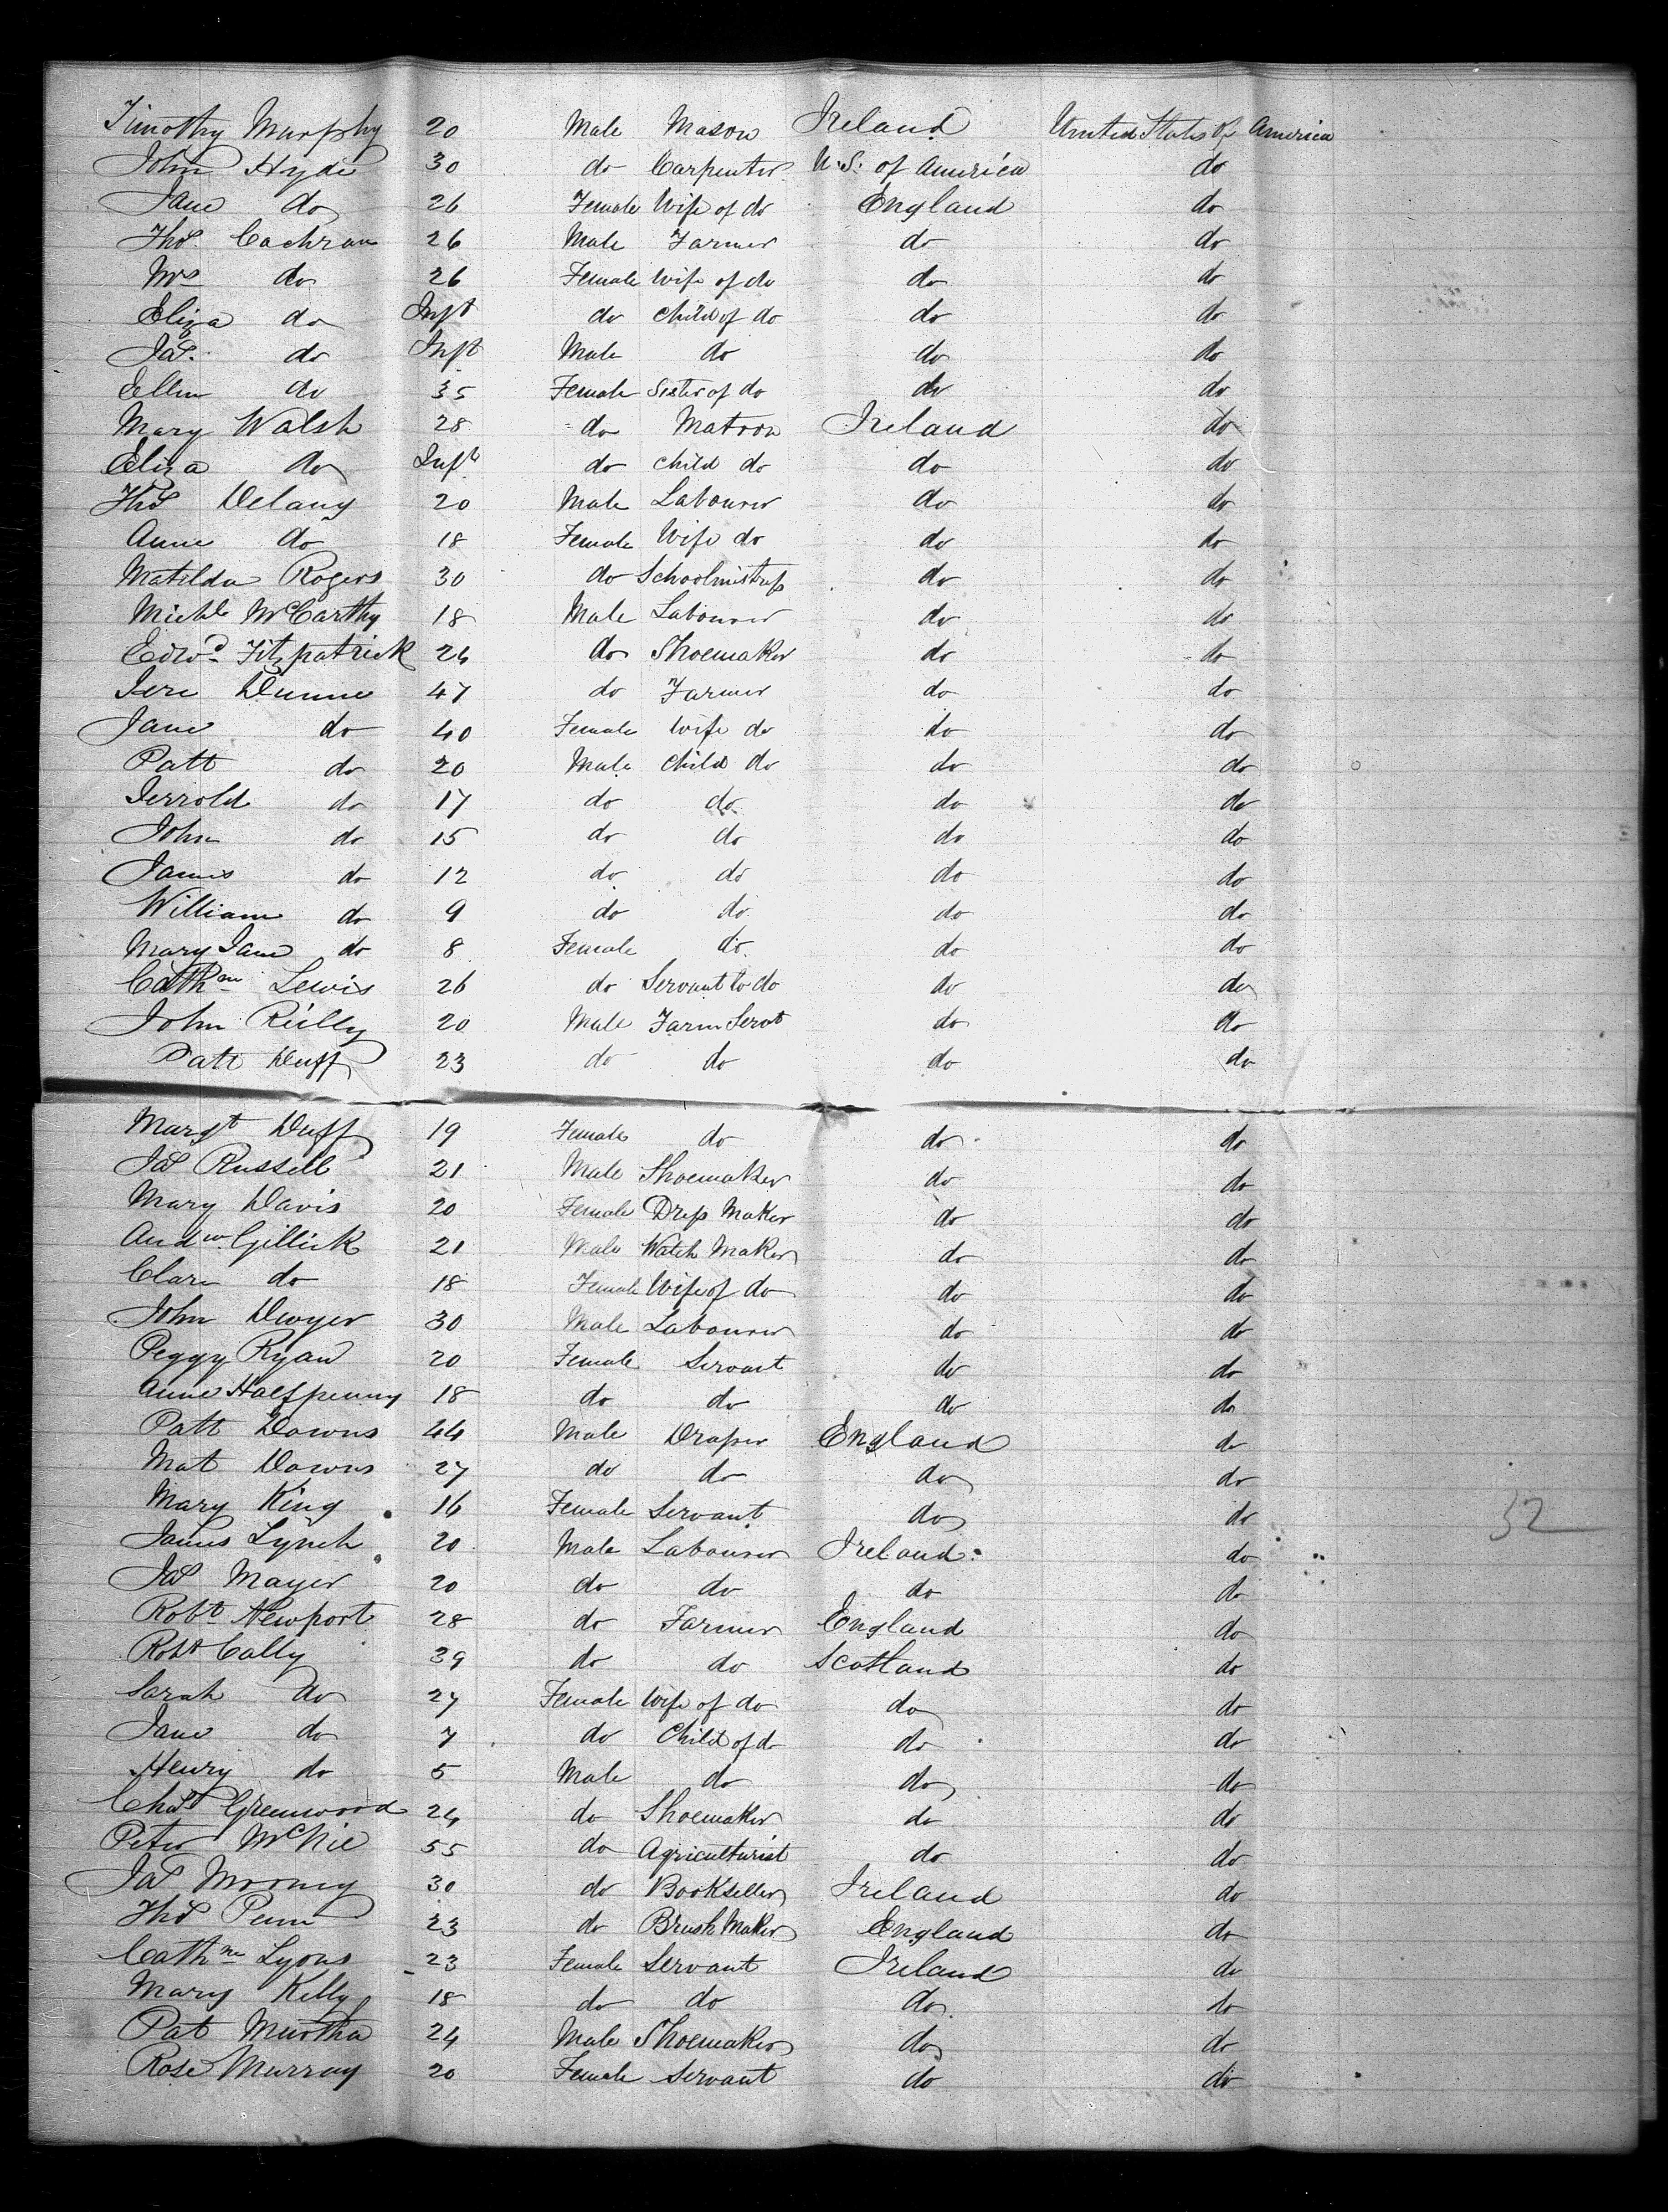 Timothy Murphy 20 Male Mason Ireland United States of America
John Hyde 30 do Carpenter U.S. of America do
Jane do 26 Female Wife of do England do
Thos Cochran 26 Male Farmer do do
Mrs do 26 Female Wife of do do do
Eliza do Inft do Child of do do do
Jas. do Inft Male do do do
Ellen do 35 Female Sister of do do do
Mary Walsh 28 do Matron Ireland do
Eliza do Inft do child do do do
Thos Delany 20 Male Labourer do do
Anne do 18 Female Wife do do do
Matilda Rogers 30 do Schoolmistress do do
Michl McCarthy 18 Male Labourer do do
Edwd Fitzpatrick 24 do Shoemaker do do
Jere Dunne 47 do Farmer do do
Jane do 40 Female wife do do do
Patt do 20 Male Child do do do
Jerrold do 17 do do do do
John do 15 do do do do
James do 12 do do do do
William do 9 do do do do
Mary Jane do 8 Female do do do
Cathne Lewis 26 do Servant to do do do
John Reilly 20 Male Farm Servt do do
Patt Duff 23 do do do do
Margt Duff 19 Female do do do
Jas Russell 21 Male Shoemaker do do
Mary Davis 20 Female Dress Maker do do
Andw. Gillick 21 Male Watch Maker do do
Clare do 18 Female Wife of do do do
John Dwyer 30 Male Labourer do do
Peggy Ryan 20 Female Servant do do
Anne Halfpenny 18 do do do do
Patt Downs 44 Male Draper England do
Mat Downs 27 do do do do
Mary King 16 Female Servant do do
James Lynch 20 Male Labourer Ireland do
Jas Mayer 20 do do do do
Robt Newport 28 do Farmer England do
Robt Cally 39 do do Scotland do
Sarah do 27 Female Wife of do do do
Jane do 7 do Child of do do do
Henry do 5 Male do do do
Chas Greenwood 24 do Shoemaker do do
Peter McNie 55 do Agriculturist do do
Jas Mooney 30 do Bookseller Ireland do
Thos Penn 23 do Brush Maker England do
Cathne Lyons 23 Female Servant Ireland do
Mary Kelly 18 do do do do
Pat Murtha 24 Male Shoemaker do do
Rose Murray 20 Female Servant do do
32